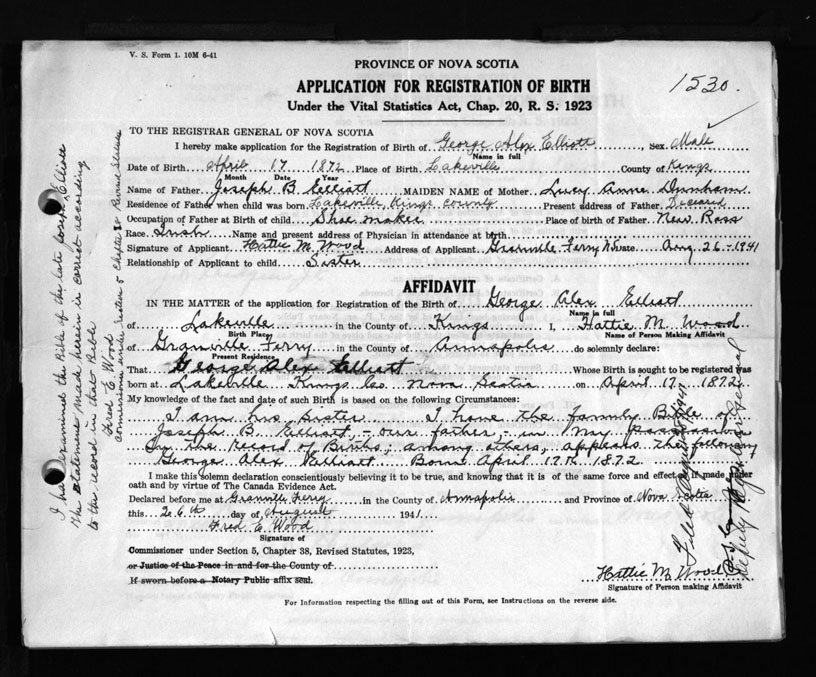 V. S. Form 1. 10M 6-41
PROVINCE OF NOVA SCOTIA
APPLICATION FOR REGISTRATION OF BIRTH
1530.
Under the Vital Statistics Act, Chap. 20, R. S. 1923
TO THE REGISTRAR GENERAL OF NOVA SCOTIA
I hereby make application for the Registration of Birth of George Alex Elliott, Sex Male
Name in full
Date of Birth April 17 1872 Place of Birth Lakeville County of Kings
Month Date Year
Name of Father Joseph B. Elliott MAIDEN NAME of Mother Lucy Anna Dunham
Residence of Father when child was born Lakeville Kings County Present address of Father Deceased
Occupation of Father at Birth of child Shoe maker Place of birth of Father New Ross
Race Irish Name and present address of Physician in attendance at birth
Signature of Applicant Hattie M. Wood Address of Applicant Granville Ferry N.S. Date Aug 26-1941
Relationship of Applicant to child Sister
AFFIDAVIT
IN THE MATTER of the application for Registration of the Birth of George Alex Elliott
Name in full
of Lakeville in the County of Kings I, Hattie M. Wood
Birth Place Name of Person Making Affidavit
of Granville Ferry in the County of Annapolis do solemnly declare:
Present Residence
That George Alex Elliott Whose Birth is sought to be registered was
born at Lakeville Kings Co. Nova Scotia on April 17 1872
My knowledge of the fact and date of such Birth is based on the following Circumstances:
I am his sister I have the family Bible of
Joseph B. Elliott, - our father, - in my possession
In the Record of Births, among others, appears the following
George Alex Elliott Born April 17th 1872
I make this solemn declaration conscientiously believing it to be true, and knowing that it is of the same force and effect as if made under
oath and by virtue of The Canada Evidence Act.
Declared before me at Granville Ferry in the County of Annapolis and Province of Nova Scotia
this 26th day of August 1941
Fred E. Wood
Signature of
Commissioner under Section 5, Chapter 38, Revised Statutes, 1923,
or Justice of the Peace in and for the County of
If sworn before a Notary Public affix seal.
Hattie M. Wood
Signature of Person making Affidavit
For Information respecting the filling out of this Form, see Instructions on the reverse side.
I have examined the Bible of the late Joseph Elliott
The statement made herein is correct according
to the record in that Bible
Fred E. Wood
Commissioner under Section 5 Chapter 38 Revised Statutes
Filed
Deputy Registrar General